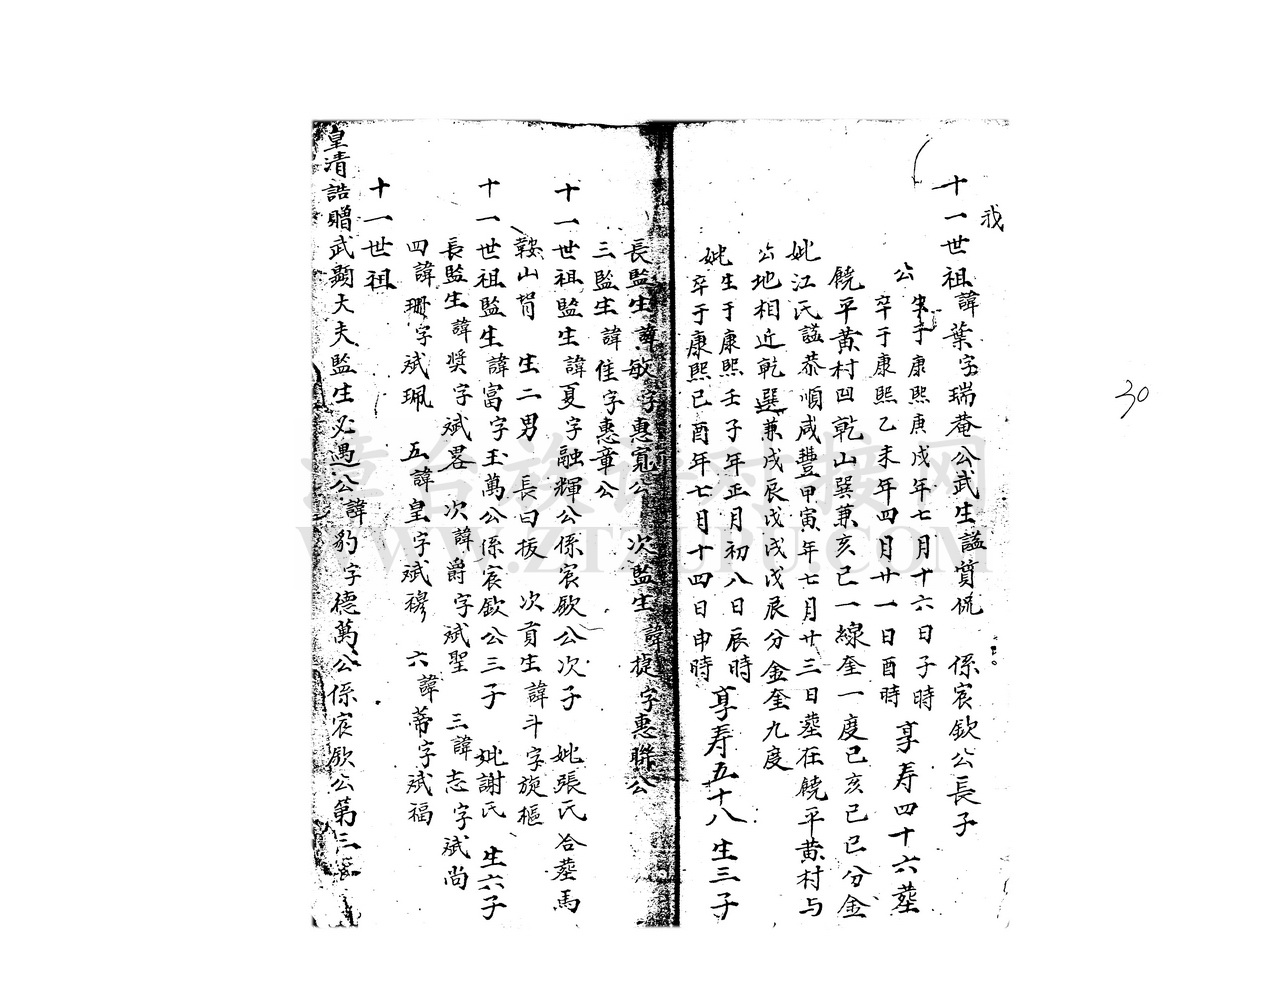 我
十一世祖諱葉字瑞菴公武生諡質侃 係宸欽公長子
公
生于康熙庚戍年七月十六日子時
卒于康熙乙未年四月廿一日酉時
享寿四十六塟
饒平黄村凹乾山巽兼亥己一線奎一度己亥己巳分金
妣江氏諡恭順咸豐甲寅年七月廿三日塟在饒平黄村与
公地相近乾巽兼戍辰戍戍戊辰分金奎九度
妣
生于康熙壬子年正月初八日辰時
卒于康熙己酉年七月十四日申時
享寿五十八生三子
長監生諱敏字惠寬公 次監生諱捷字惠聯公
三監生諱佳字惠章公
十一世祖監生諱夏字融輝公係宸欽公次子 妣張氏合塟馬
鞍山 生二男 長曰扳 次貢生諱斗字旋樞
十一世祖監生諱富字玉萬公係宸欽公三子 妣謝氏 生六子
長監生諱奨字斌畧 次諱爵字斌聖 三諱志字斌尚
四諱珊字斌珮 五諱皇字斌穆 六諱蒂字斌福
十一世祖
皇清誥贈武顯大夫監生必遇公諱豹字德萬公係宸欽公第三
30
漳台族谱对接网
WWW.ZTZUPU.COM